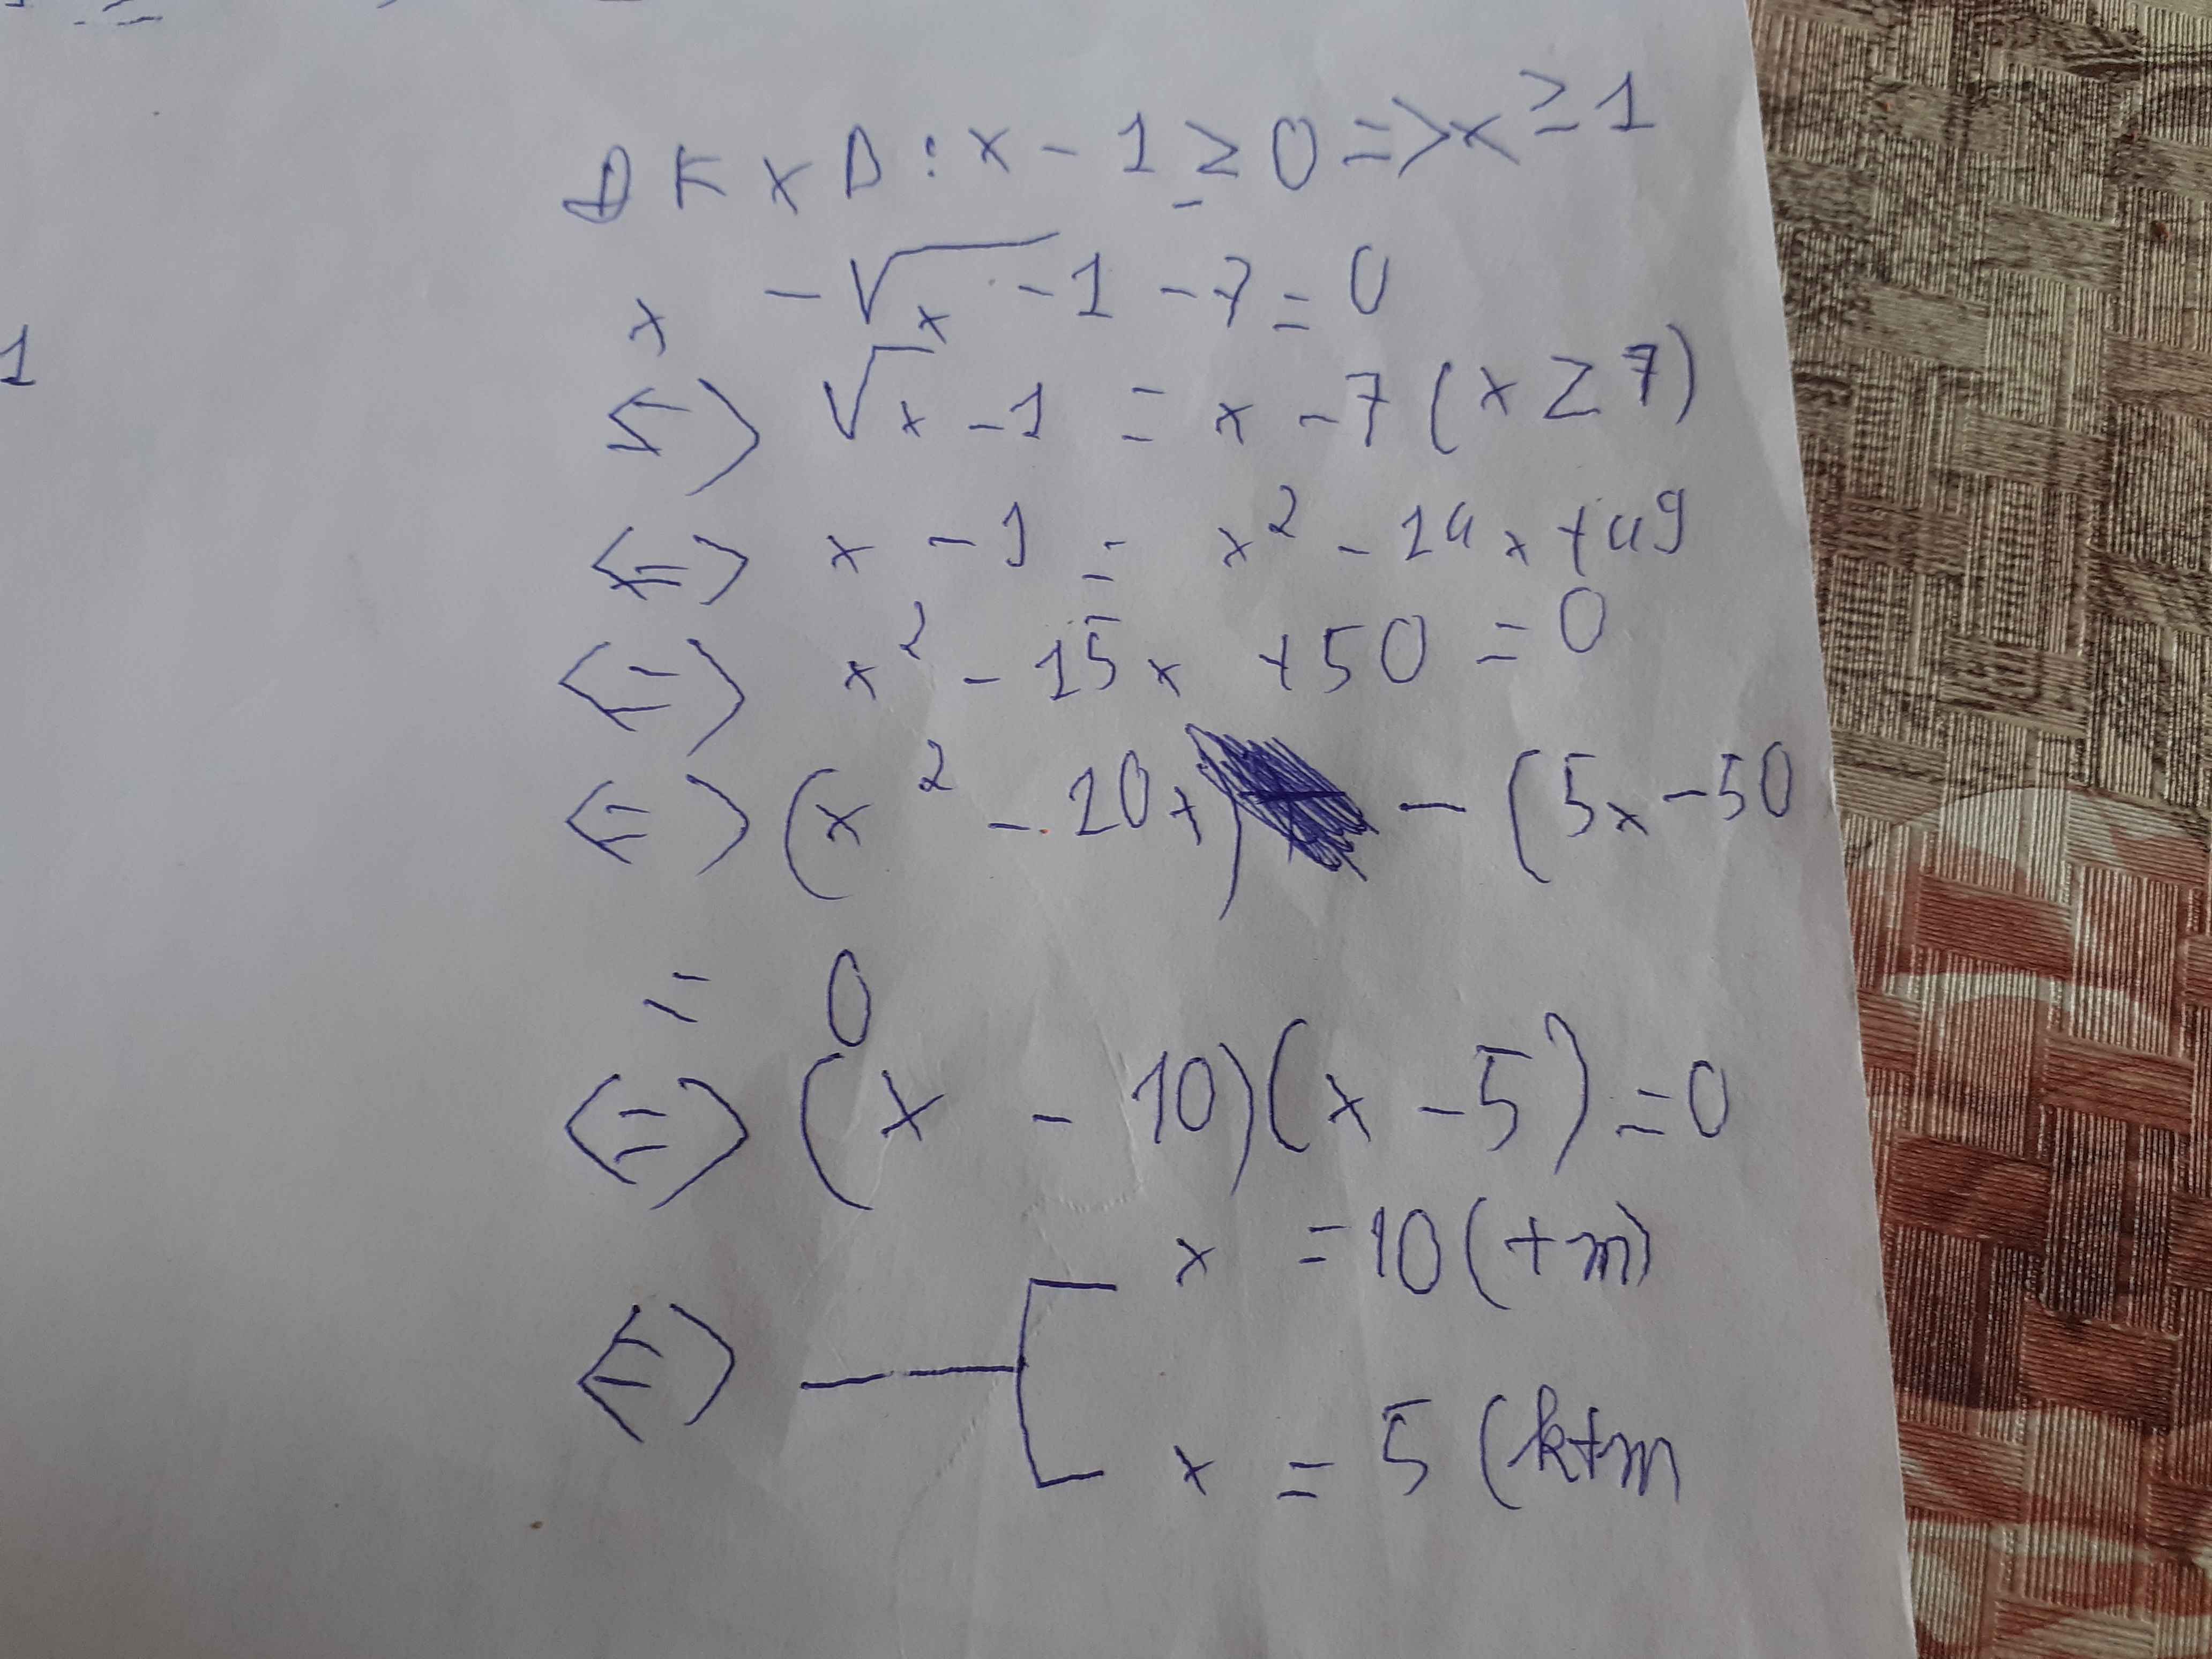 1
ĐKXĐ: x - 1 ≥ 0 => x ≥ 1
x - √x - 1 - 7 = 0
<=> √x - 1 = x - 7 (x ≥ 7)
<=> x - 1 = x² - 14x + 49
<=> x² - 15x + 50 = 0
<=> (x² - 10x) - (5x - 50
= 0
<=> (x - 10)(x - 5) = 0
x = 10 (tm)
<=>
x = 5 (ktm